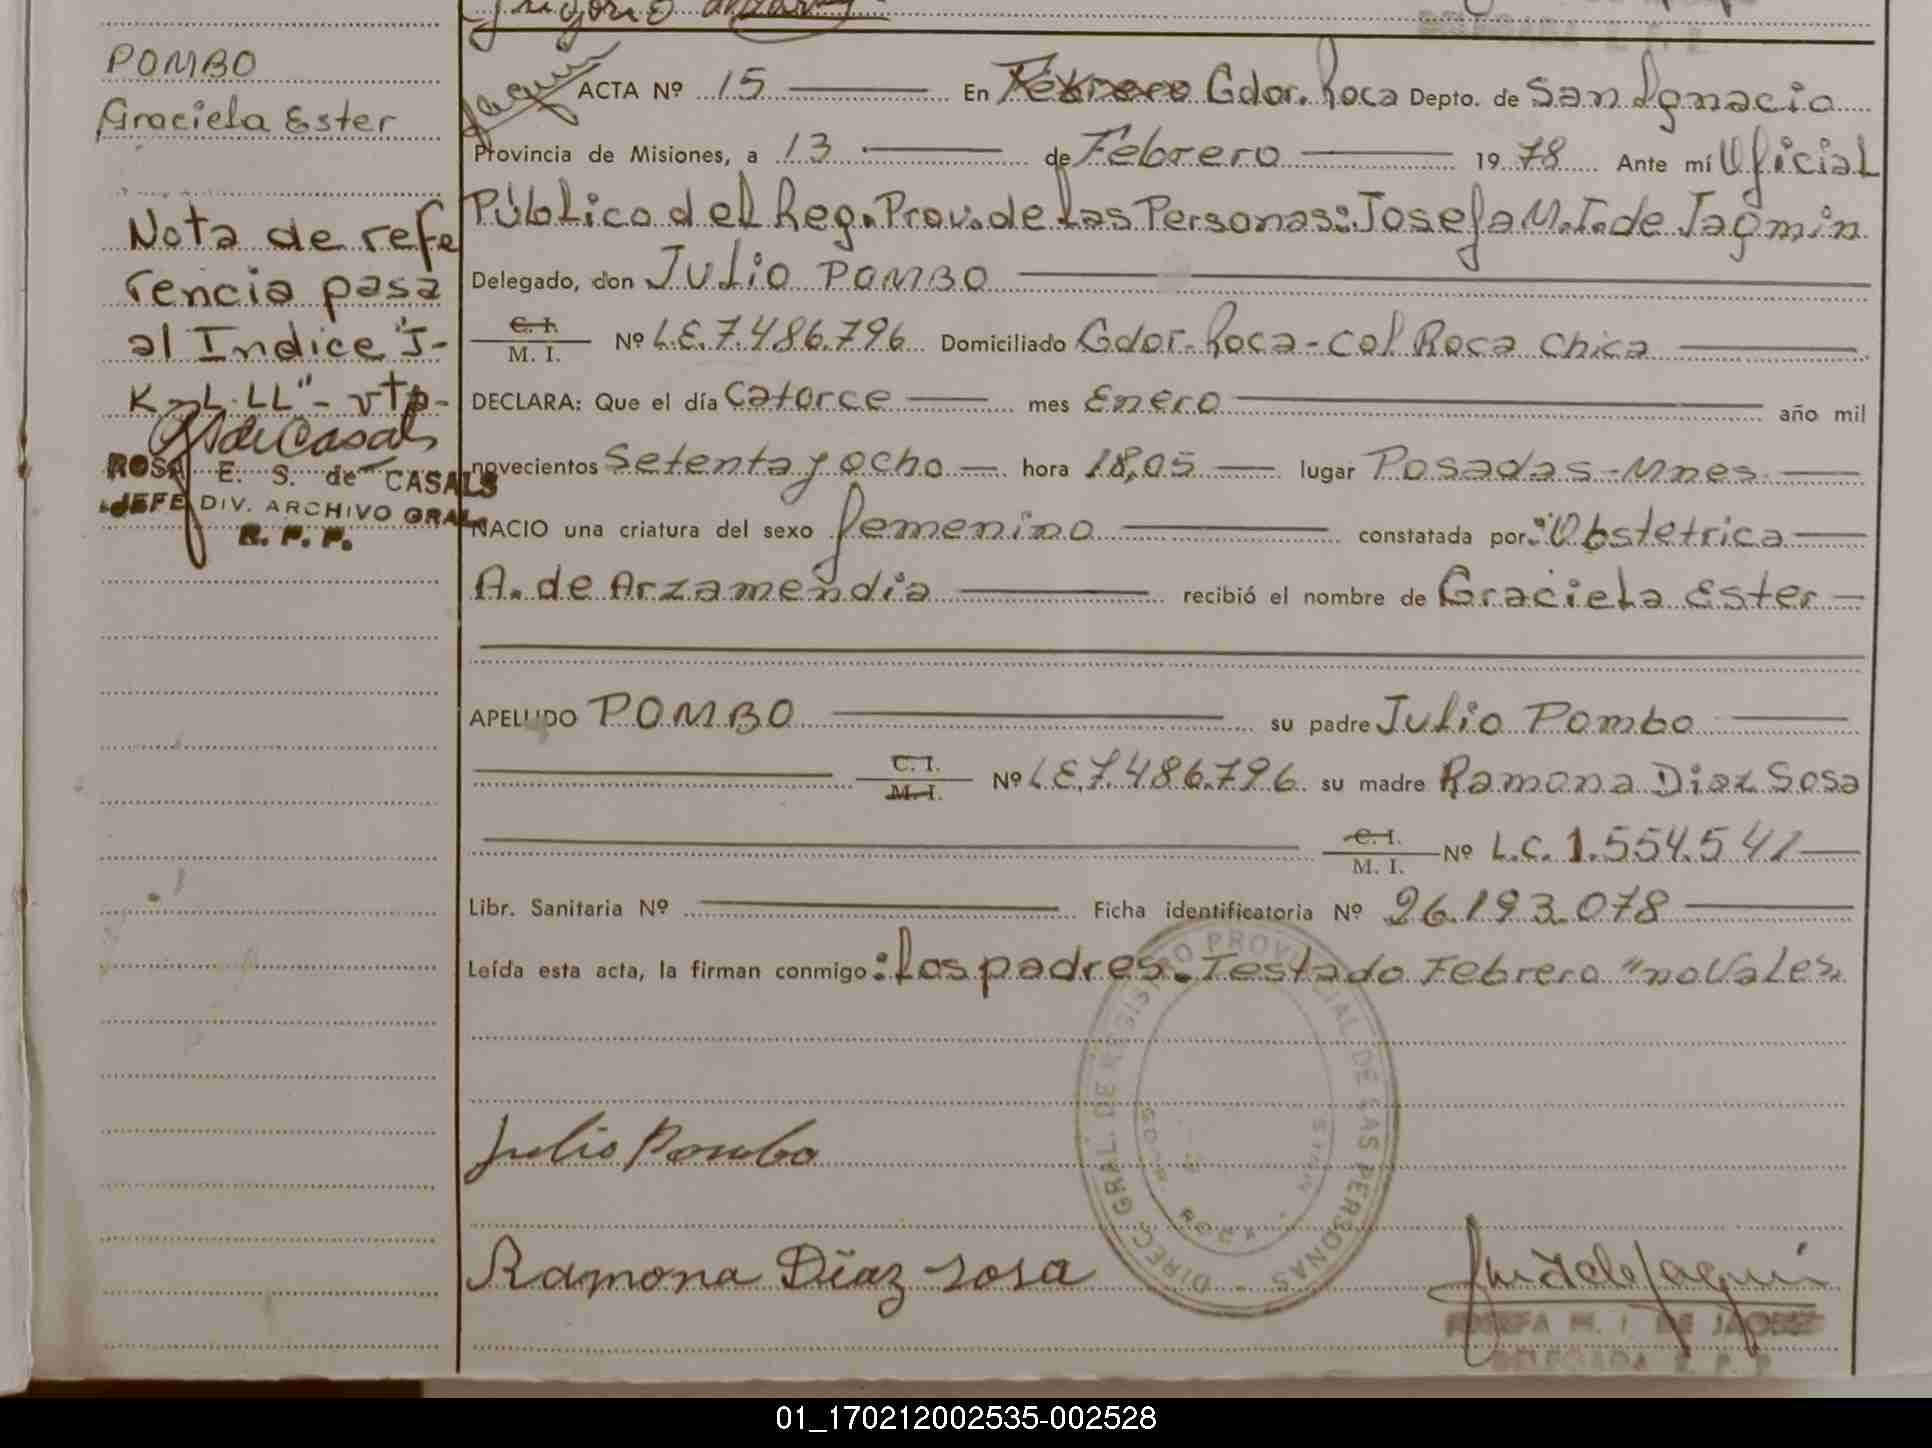 POMBO
Graciela Ester
Nota de refe
rencia pasa
al Indice "J-
K-L-LL"-
ROSA E. S. de CASALS
JEFE DIV. ARCHIVO GRAL.
R. P. P.
ACTA Nº 15 En Febrero Gdor. Roca Depto. de San Ignacio
Provincia de Misiones, a 13 de Febrero 19 78 Ante mí Oficial
Público del Reg. Prov. de las Personas: Josefa M. I. de Jaqmin
Delegado, don Julio POMBO
C. I.
M. I. Nº L.E. 7.486.796 Domiciliado Gdor. Roca-Col Roca Chica
DECLARA: Que el día Catorce mes Enero año mil
novecientos setenta y ocho hora 18,05 lugar Posadas-Mnes
NACIO una criatura del sexo femenino constatada por: Obstetrica
A. de Arzamendia recibió el nombre de Graciela Ester
APELLIDO POMBO su padre Julio Pombo
C. I.
M. I. Nº L.E. 7.486.796 su madre Ramona Diaz Sosa
C. I.
M. I. Nº L.C. 1.554.541
Libr. Sanitaria Nº Ficha identificatoria Nº 26.193.078
Leída esta acta, la firman conmigo: los padres. Testado Febrero "no Vale".
DIREC. GRAL. DE REGISTRO PROVINCIAL DE LAS PERSONAS
GDOR. ROCA
Julio Pombo
Ramona Díaz Sosa
JOSEFA M. I. DE
DELEGADA R. P. P.
01_170212002535-002528